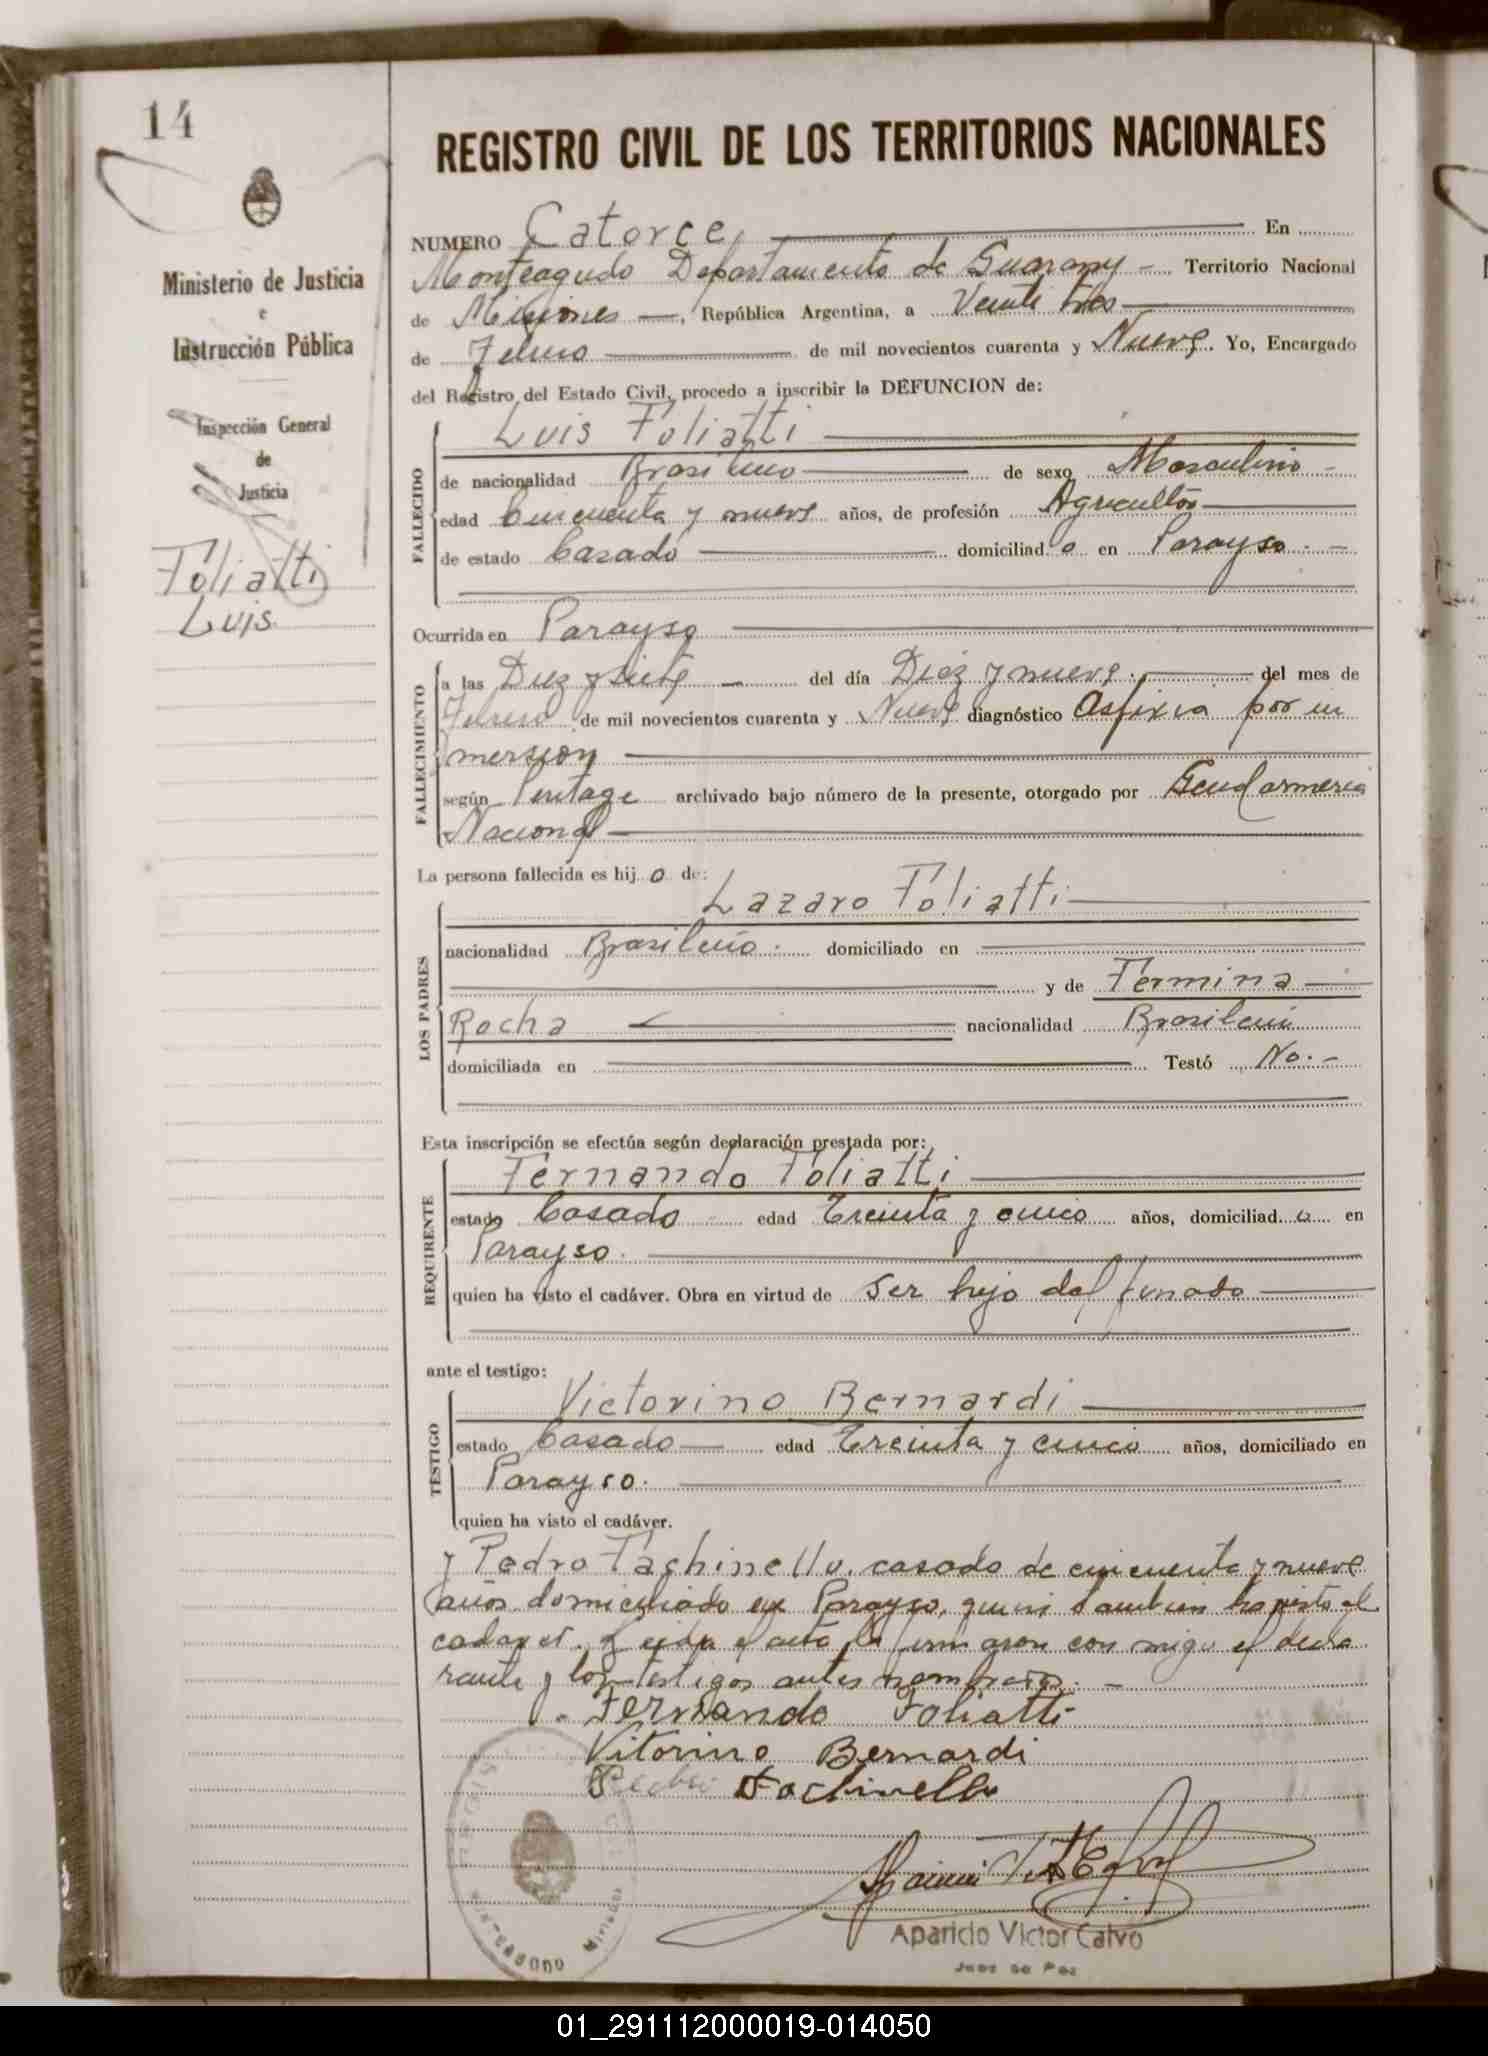 14
Ministerio de Justicia
e
Instrucción Pública
Inspección General
de
Justicia
Foliatti
Luis
REGISTRO CIVIL DE LOS TERRITORIOS NACIONALES
NUMERO Catorce, En
Monteagudo Departamento de Guarany Territorio Nacional
de Misiones, República Argentina, a Veinti tres
de Febrero de mil novecientos cuarenta y Nueve. Yo, Encargado
del Registro del Estado Civil, procedo a inscribir la DEFUNCION de:
FALLECIDO
Luis Foliatti
de nacionalidad Brasileño de sexo Masculino
edad Cincuenta y nueve años, de profesión Agricultor
de estado Casado domiciliado en Parayso.
Ocurrida en Parayso
FALLECIMIENTO
a las Diez y siete del día Diez y nueve. del mes de
Febrero de mil novecientos cuarenta y Nueve diagnóstico Asfixia por in
mersión
según Peritage archivado bajo número de la presente, otorgado por Gendarmeria
Nacional
La persona fallecida es hijo de:
LOS PADRES
Lazaro Foliatti
nacionalidad Brasileño. domiciliado en
y de Fermina
Rocha nacionalidad Brasileñ
domiciliada en Testó No.-
Esta inscripción se efectúa según declaración prestada por:
REQUIRENTE
Fernando Foliatti
estado Casado edad Treinta y cinco años, domiciliado en
Parayso.
quien ha visto el cadáver. Obra en virtud de ser hijo del finado
ante el testigo:
TESTIGO
Victorino Bernardi
estado Casado edad Treinta y cinco años, domiciliado en
Parayso.
quien ha visto el cadáver.
y Pedro Fachinello. casado de cincuenta y nueve
años domiciliado en Parayso, quien tambien ha visto el
cadaver. Leida el acta la firmaron con migo el decla
rante y los testigos antes nombrados. -
Fernando Foliatti
Vitorino Bernardi
Pedro Fachinello
Aparicio Victor Calvo
Juez de Paz
MONTEAGUDO Misiones
01_291112000019-014050